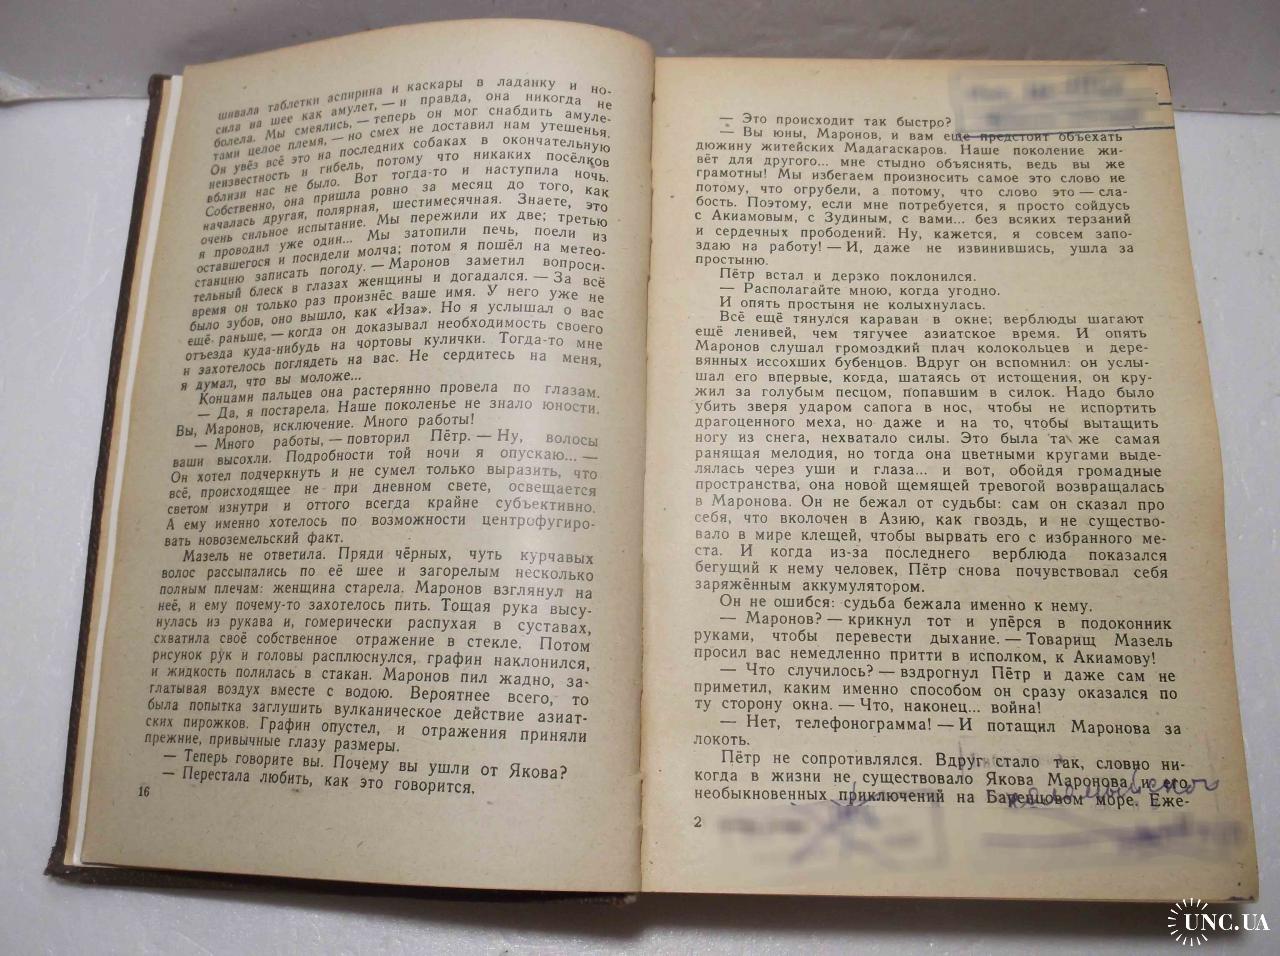 шивала таблетки аспирина и каскары в ладанку и но-
сила на шее как амулет, — и правда, она никогда не
болела. Мы смеялись, — теперь он мог снабдить амуле-
тами целое племя, — но смех не доставил нам утешенья.
Он увёз всё это на последних собаках в окончательную
неизвестность и гибель, потому что никаких посёлков
вблизи нас не было. Вот тогда-то и наступила ночь.
Собственно, она пришла ровно за месяц до того, как
началась другая, полярная, шестимесячная. Знаете, это
очень сильное испытание. Мы пережили их две; третью
я проводил уже один... Мы затопили печь, поели из
оставшегося и посидели молча; потом я пошёл на метео-
станцию записать погоду. — Маронов заметил вопроси-
тельный блеск в глазах женщины и догадался. — За всё
время он только раз произнёс ваше имя. У него уже не
было зубов, оно вышло, как «Иза». Но я услышал о вас
ещё раньше, — когда он доказывал необходимость своего
отъезда куда-нибудь на чортовы кулички. Тогда-то мне
и захотелось поглядеть на вас. Не сердитесь на меня,
я думал, что вы моложе...
Концами пальцев она растерянно провела по глазам.
— Да, я постарела. Наше поколенье не знало юности.
Вы, Маронов, исключение. Много работы!
— Много работы, — повторил Пётр. — Ну, волосы
ваши высохли. Подробности той ночи я опускаю... —
Он хотел подчеркнуть и не сумел только выразить, что
всё, происходящее не при дневном свете, освещается
светом изнутри и оттого всегда крайне субъективно.
А ему именно хотелось по возможности центрофугиро-
вать новоземельский факт.
Мазель не ответила. Пряди чёрных, чуть курчавых
волос рассыпались по её шее и загорелым несколько
полным плечам: женщина старела. Маронов взглянул на
неё, и ему почему-то захотелось пить. Тощая рука высу-
нулась из рукава и, гомерически распухая в суставах,
схватила своё собственное отражение в стекле. Потом
рисунок рук и головы расплюснулся, графин наклонился,
и жидкость полилась в стакан. Маронов пил жадно, за-
глатывая воздух вместе с водою. Вероятнее всего, то
была попытка заглушить вулканическое действие азиат-
ских пирожков. Графин опустел, и отражения приняли
прежние, привычные глазу размеры.
— Теперь говорите вы. Почему вы ушли от Якова?
— Перестала любить, как это говорится.
16
— Это происходит так быстро?
— Вы юны, Маронов, и вам еще предстоит объехать
дюжину житейских Мадагаскаров. Наше поколение жи-
вёт для другого... мне стыдно объяснять, ведь вы же
грамотны! Мы избегаем произносить самое это слово не
потому, что огрубели, а потому, что слово это — сла-
бость. Поэтому, если мне потребуется, я просто сойдусь
с Акиамовым, с Зудиным, с вами... без всяких терзаний
и сердечных прободений. Ну, кажется, я совсем запо-
здаю на работу! — И, даже не извинившись, ушла за
простыню.
Пётр встал и дерзко поклонился.
— Располагайте мною, когда угодно.
И опять простыня не колыхнулась.
Всё ещё тянулся караван в окне; верблюды шагают
ещё ленивей, чем тягучее азиатское время. И опять
Маронов слушал громоздкий плач колокольцев и дере-
вянных иссохших бубенцов. Вдруг он вспомнил: он услы-
шал его впервые, когда, шатаясь от истощения, он кру-
жил за голубым песцом, попавшим в силок. Надо было
убить зверя ударом сапога в нос, чтобы не испортить
драгоценного меха, но даже и на то, чтобы вытащить
ногу из снега, нехватало силы. Это была та же самая
ранящая мелодия, но тогда она цветными кругами выде-
лялась через уши и глаза... и вот, обойдя громадные
пространства, она новой щемящей тревогой возвращалась
в Маронова. Он не бежал от судьбы: сам он сказал про
себя, что вколочен в Азию, как гвоздь, и не существо-
вало в мире клещей, чтобы вырвать его с избранного ме-
ста. И когда из-за последнего верблюда показался
бегущий к нему человек, Пётр снова почувствовал себя
заряжённым аккумулятором.
Он не ошибся: судьба бежала именно к нему.
— Маронов? — крикнул тот и упёрся в подоконник
руками, чтобы перевести дыхание. — Товарищ Мазель
просил вас немедленно притти в исполком, к Акиамову!
— Что случилось? — вздрогнул Пётр и даже сам не
приметил, каким именно способом он сразу оказался по
ту сторону окна. — Что, наконец... война!
— Нет, телефонограмма! — И потащил Маронова за
локоть.
Пётр не сопротивлялся. Вдруг стало так, словно ни-
когда в жизни не существовало Якова Маронова и его
необыкновенных приключений на Баренцовом море. Еже-
2
UNC.UA